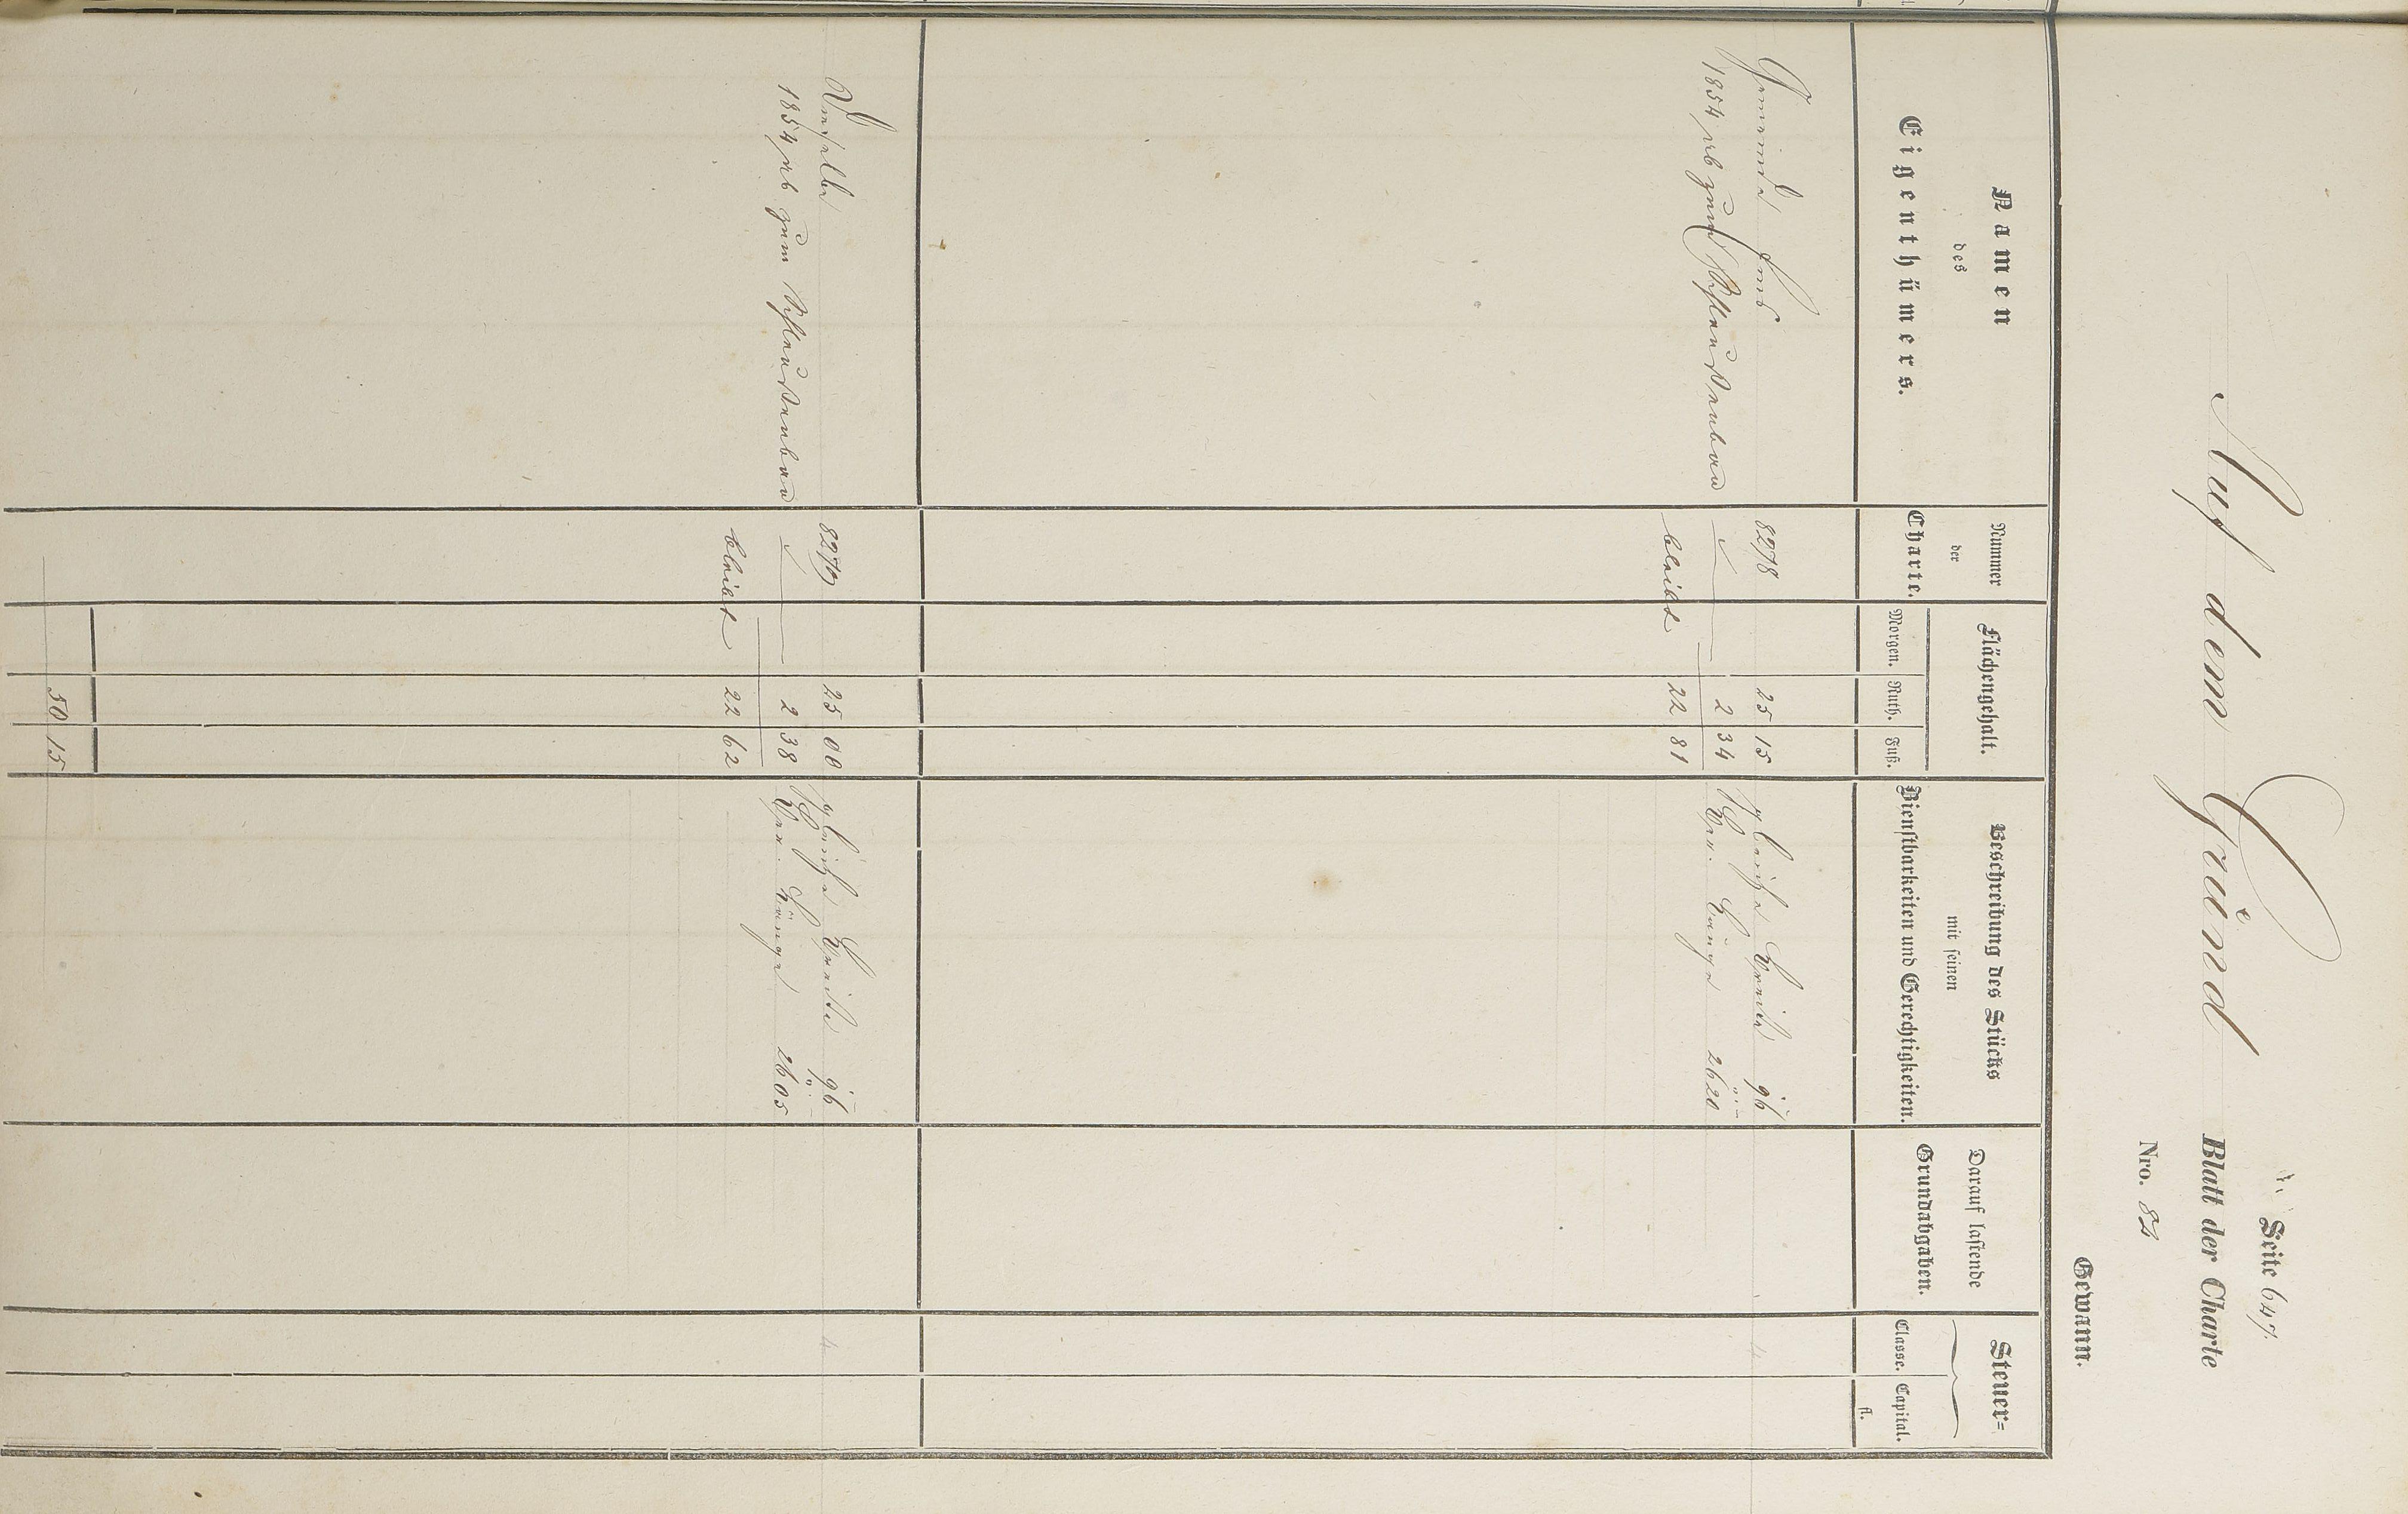 Seite 647.
Auf dem Gründ
Blatt der Charte
Nro. 82
Gewann.
Namen
des
Eigenthümers.
Nummer
der
Charte.
Flächengehalt.
Morgen. Ruth. Fuß.
Beschreibung des Stücks
mit seinen
Dienstbarkeiten und Gerechtigkeiten.
Darauf lastende
Grundabgaben.
Steuer=
Classe. Capital.
fl.
Gemeinde Ems 8278 25 15 gleiche Breite 96
1854 ab zum Chausseenbau 2 34 Ver. Länge 2620
bleibt 22 81
4
Dieselbe 8279 25 00 gleiche Breite 96
1854 ab zum Chausseenbau 2 38 Ver. Länge 2605
bleibt 22 62
4
50 15